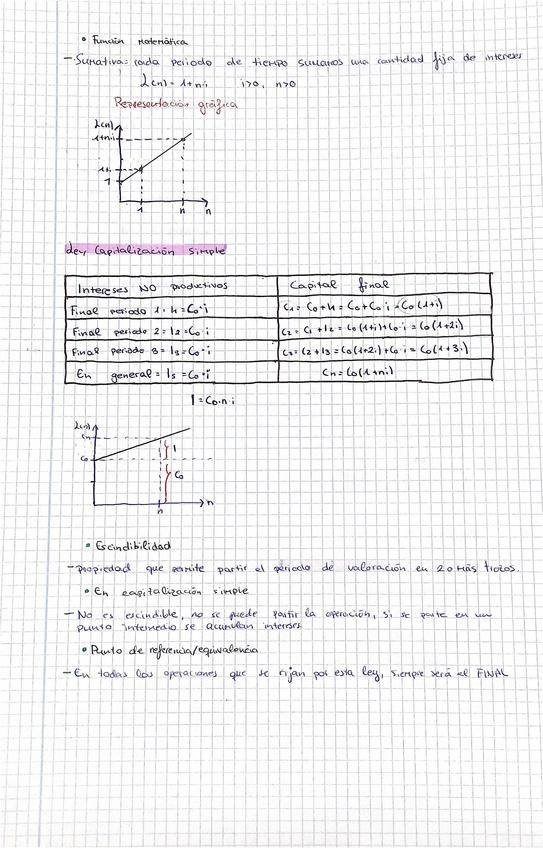 • Función Matemática
- Sumativa: cada periodo de tiempo sumamos una cantidad fija de interes
L(n) = 1+n·i i>0, n>0
Representación gráfica
L(n)
1+n·i
1+i
1
1 n n
Ley Capitalización simple
Intereses NO productivos Capital final
Final periodo 1: I1 = C0·i C1 = C0 + I1 = C0 + C0·i = C0(1+i)
Final periodo 2 = I2 = C0·i C2 = C1 + I2 = C0(1+i) + C0·i = C0(1+2i)
Final periodo 3 = I3 = C0·i C3 = C2 + I3 = C0(1+2i) + C0·i = C0(1+3·i)
En general = Is = C0·i Cn = C0(1+ni)
I = C0·n·i
L(n)
Cn
C0
I
C0
n n
• Escindibilidad
- Propiedad que permite partir el periodo de valoración en 2 o más trozos.
• En capitalización simple
- No es escindible, no se puede partir la operación, si se parte en un
punto intermedio se acumulan intereses
• Punto de referencia/equivalencia
- En todas las operaciones que se rijan por esta ley, siempre será el FINAL